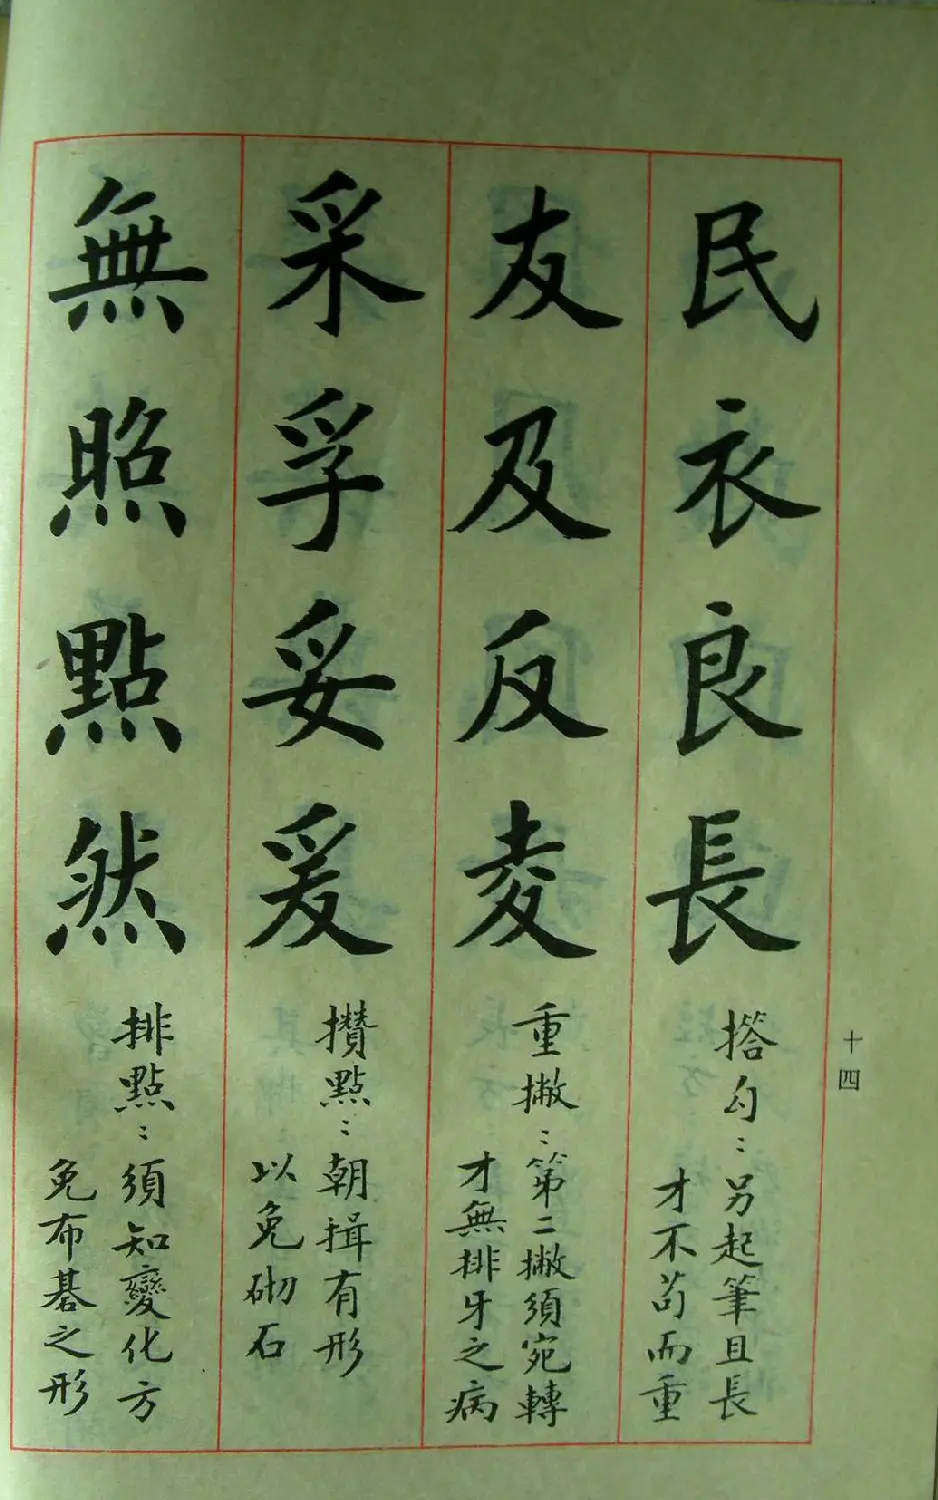 民衣良長
搭勾：另起筆且長
才不苟而重
友及反夌
重撇：第二撇須宛轉
才無排牙之病
采孚妥爰
攢點：朝揖有形
以免砌石
無照點然
排點：須知變化方
免布碁之形
十四